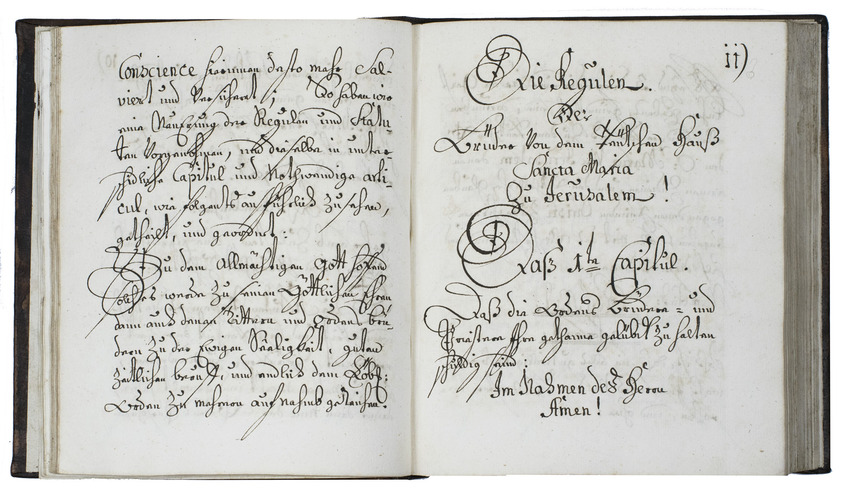 Conscience können desto mehr Sal-
viert und Versichert ; So haben wir
eine Neuerung der Regulen und Statu-
ten Vorgenohmen, und dieselbe in unter-
schidliche Capitul und Nothwendige arti-
cul, wie folgents ausführlich zu sehen,
getheilt, und geordnet :
Zu dem Allmächtigen Gott hoffend
solches werde zu seinen Göttlichen Ehren
dann auch denen Rittern und Ordens brü-
dern zu der Ewigen Seeligkeit, guten
Zeitlichen beruff, und endlich dem Löbl:
Orden zu mehren aufnahmb gedeÿhen.
ii)
Die Regulen.
Der
Brüder Von dem Teütschen Hauß
Sancta Maria
Zu Jerusalem !
Daß 1te Capitul.
Daß die Ordens Brüdere = und
Priestere Ihre gethanne gelübt zu halten
schuldig seind :
Im Nahmen deß Herrn
Amen !